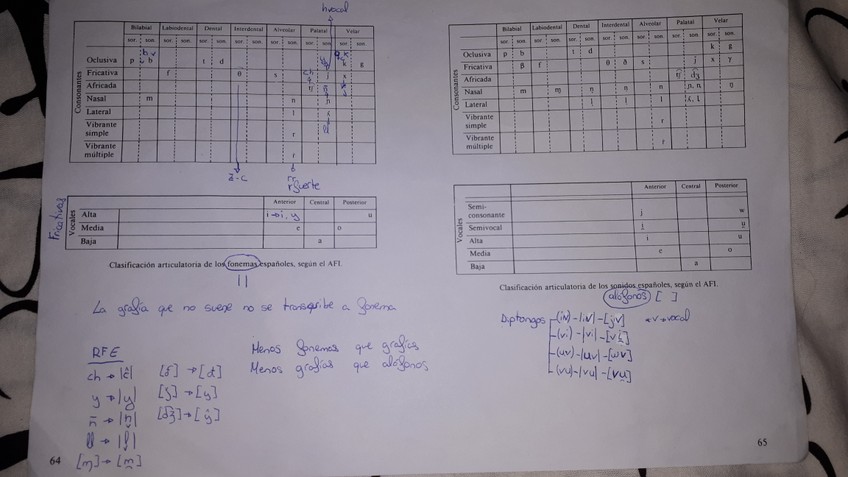 hvocal
Bilabial Labiodental Dental Interdental Alveolar Palatal Velar
sor. son. sor. son. sor. son. sor. son. sor. son. sor. son. sor. son.
b v
Consonantes
Oclusiva p b t d k g
Fricativa f θ s x
ch
Africada
Nasal m n
Lateral l ʎ
Vibrante simple r
ll
Vibrante múltiple r
z-c
rr
r fuerte
Fricativas
Vocales
Anterior Central Posterior
Alta i→i, y u
Media e o
Baja a
Clasificación articulatoria de los fonemas españoles, según el AFI.
La grafía que no suene no se transcribe a fonema
RFE
Menos fonemas que grafías
Menos grafías que alófonos
ch → |ĉ|
y → |y|
ñ →
ll →
[ɱ] → [m̯]
→ [d]
→ [y]
[d͡ʒ] → [ŷ]
64
Bilabial Labiodental Dental Interdental Alveolar Palatal Velar
sor. son. sor. son. sor. son. sor. son. sor. son. sor. son. sor. son.
Consonantes
Oclusiva p b t d k g
Fricativa β f θ ð s x
Africada d͡ʒ
Nasal m ɱ n ŋ
Lateral l
Vibrante simple r
Vibrante múltiple r
Vocales
Anterior Central Posterior
Semi-consonante j w
Semivocal
Alta i u
Media e o
Baja a
Clasificación articulatoria de los sonidos españoles, según el AFI.
alófonos [ ]
Diptongos (iv) - |iv| - [jv] *v→vocal
(vi) - |vi| - [vi̯]
(uv) - |uv| - [wv]
(vu) - |vu| - [vu̯]
65